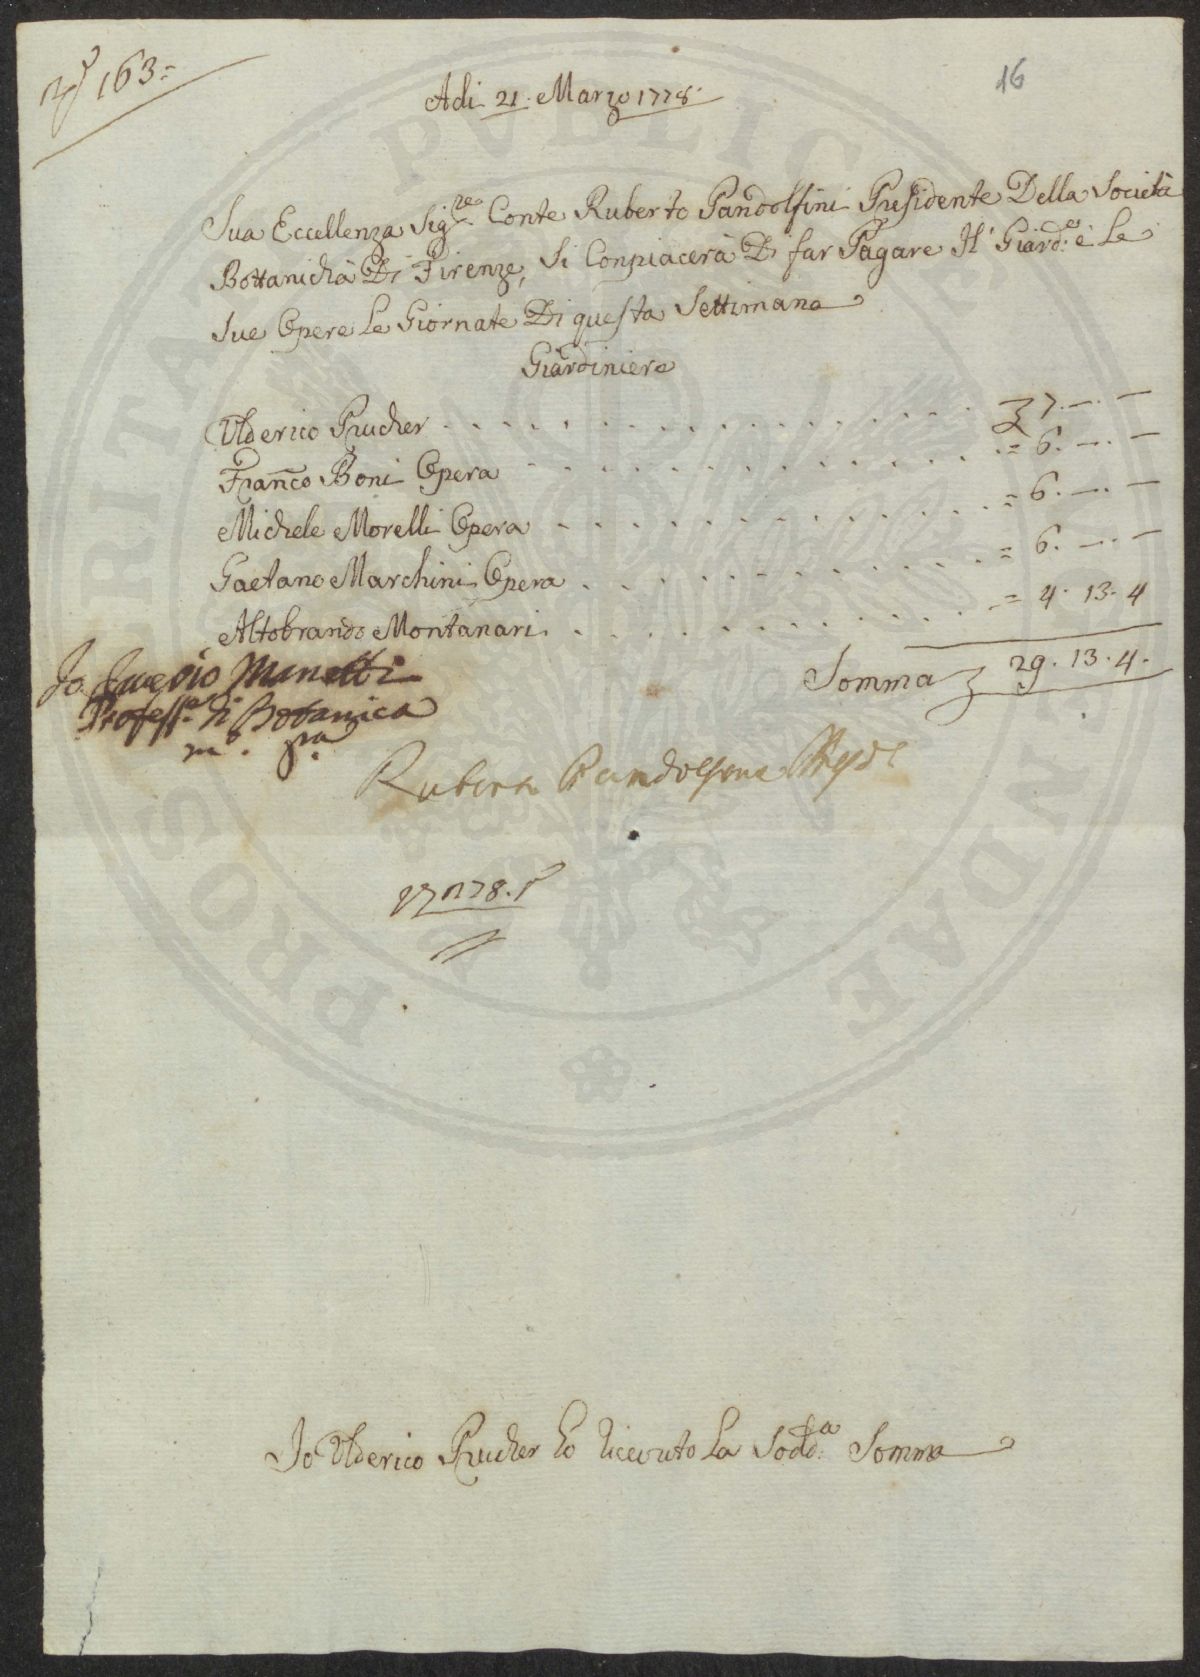 N.º 163=
16
Adi 21. Marzo 1778.
Sua Eccellenza Sig.re Conte Ruberto Pandolfini Presidente Della Società
Bottanicha Di Firenze, Si Conpiacerà Di far Pagare Il Giard.e e Le
Sue Opere Le Giornate Di questa Settimana
Giardiniere
Ulderico Prucher . . . . . . . . . . . . . . . 7. —. —
Franco Boni Opera - . . . . . . . . . . . . = 6. —. —
Michele Morelli Opera - . . . . . . . . . . . = 6. —. —
Gaetano Marchini Opera . . . . . . . . . . . = 6. —. —
Altobrando Montanari. . . . . . . . . . . = 4. 13. 4
Somma 29. 13. 4.
Io Saverio Manetti
Profess.e di Botanica
m.o p.a
Ruberto Pandolfini Presde
Io Ulderico Prucher ho ricevuto La Sodd.a Somma
PVBLICAE
PROSPERITATI